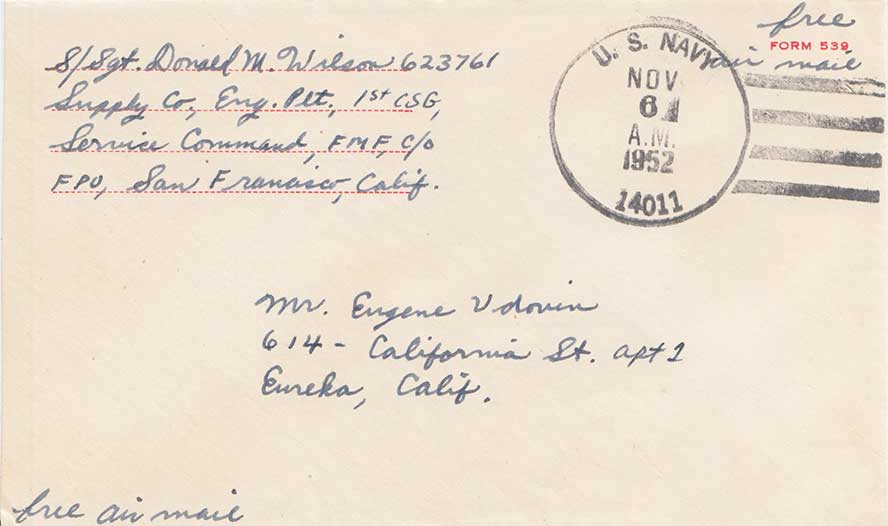 S/Sgt. Donald M. Wilson 623761
Supply Co., Eng. Plt., 1st CSG,
Service Command, FMF, C/O
FPO, San Francisco, Calif.
U. S. NAVY
NOV
6
A.M.
1952
14011
free
FORM 539
air mail
Mr. Eugene Vdovin
614 - California St. apt 1
Eureka, Calif.
free air mail